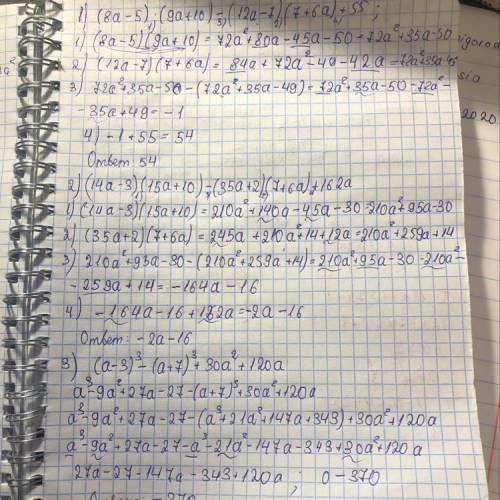 1) (8a-5)(9a+10)-(12a-7)(7+6a)+55;
1) (8a-5)(9a+10)=72a²+80a-45a-50=72a²+35a-50
2) (12a-7)(7+6a)=84a+72a²-49-42a=72a²
3) 72a²+35a-50-(72a²+35a-49)=72a²+35a-50-72a²-
-35a+49=-1
4) -1+55=54
Ответ: 54
2) (14a-3)(15a+10)-(35a+2)(7+6a)+162a
1) (14a-3)(15a+10)=210a²+140a-45a-30=210a²+95a-30
2) (35a+2)(7+6a)=245a+210a²+14+12a=210a²+259a+14
3) 210a²+95a-30-(210a²+259a+14)=210a²+95a-30-210a²-
-259a+14=-164a-16
4) -164a-16+162a=-2a-16
Ответ: -2a-16
3) (a-3)³-(a+7)³+30a²+120a
a³-9a²+27a-27-(a+7)³+30a²+120a
a³-9a²+27a-27-(a³+21a²+147a+343)+30a²+120a
a³-9a²+27a-27-a³-21a²-147a-343+30a²+120a
27a-27-147a-343+120a; 0-370
2020